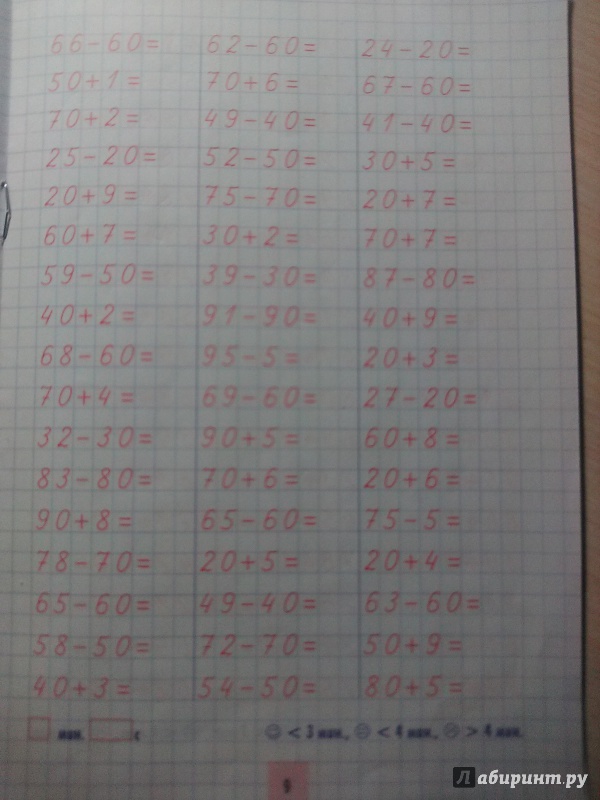 66-60= 62-60= 24-20=
50+1= 70+6= 67-60=
70+2= 49-40= 41-40=
25-20= 52-50= 30+5=
20+9= 75-70= 20+7=
60+7= 30+2= 70+7=
59-50= 39-30= 87-80=
40+2= 91-90= 40+9=
68-60= 95-5= 20+3=
70+4= 69-60= 27-20=
32-30= 90+5= 60+8=
83-80= 70+6= 20+6=
90+8= 65-60= 75-5=
78-70= 20+5= 20+4=
65-60= 49-40= 63-60=
58-50= 72-70= 50+9=
40+3= 54-50= 80+5=
мин. с < 3 мин., < 4 мин., > 4 мин.
9
Лабиринт.ру